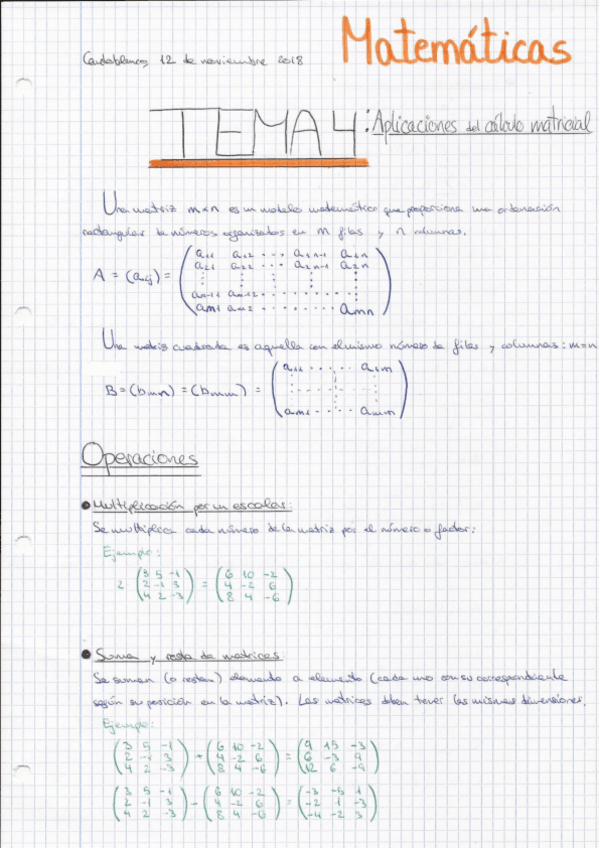 Matemáticas
12 de noviembre 2018
TEMA 4: Aplicaciones del cálculo matricial
Una matriz m×n es un modelo matemático que proporciona una ordenación
rectangular de números organizados en m filas y n columnas.
A = (aij) = ( a11 a12 ... a1n-1 a1n
a21 a22 ... a2n-1 a2n
am-11 am-12 ...
am1 am2 ... amn )
Una matriz cuadrada es aquella con el mismo número de filas y columnas: m=n
B = (bmn) = (bmm) = ( a11 ... a1m
am1 ... amm )
Operaciones
• Multiplicación por un escalar:
Se multiplica cada número de la matriz por el número o factor:
Ejemplo:
2 ( 3 5 -1 ) = ( 6 10 -2 )
( 2 -1 3 ) ( 4 -2 6 )
( 4 2 -3 ) ( 8 4 -6 )
• Suma y resta de matrices:
Se suman (o restan) elemento a elemento (cada uno con su correspondiente
según su posición en la matriz). Las matrices deben tener las mismas dimensiones.
Ejemplo:
( 3 5 -1 ) + ( 6 10 -2 ) = ( 9 15 -3 )
( 2 -1 3 ) ( 4 -2 6 ) ( 6 -3 9 )
( 4 2 -3 ) ( 8 4 -6 ) ( 12 6 -9 )
( 3 5 -1 ) - ( 6 10 -2 ) = ( -3 -5 1 )
( 2 -1 3 ) ( 4 -2 6 ) ( -2 1 -3 )
( 4 2 -3 ) ( 8 4 -6 ) ( -4 -2 3 )